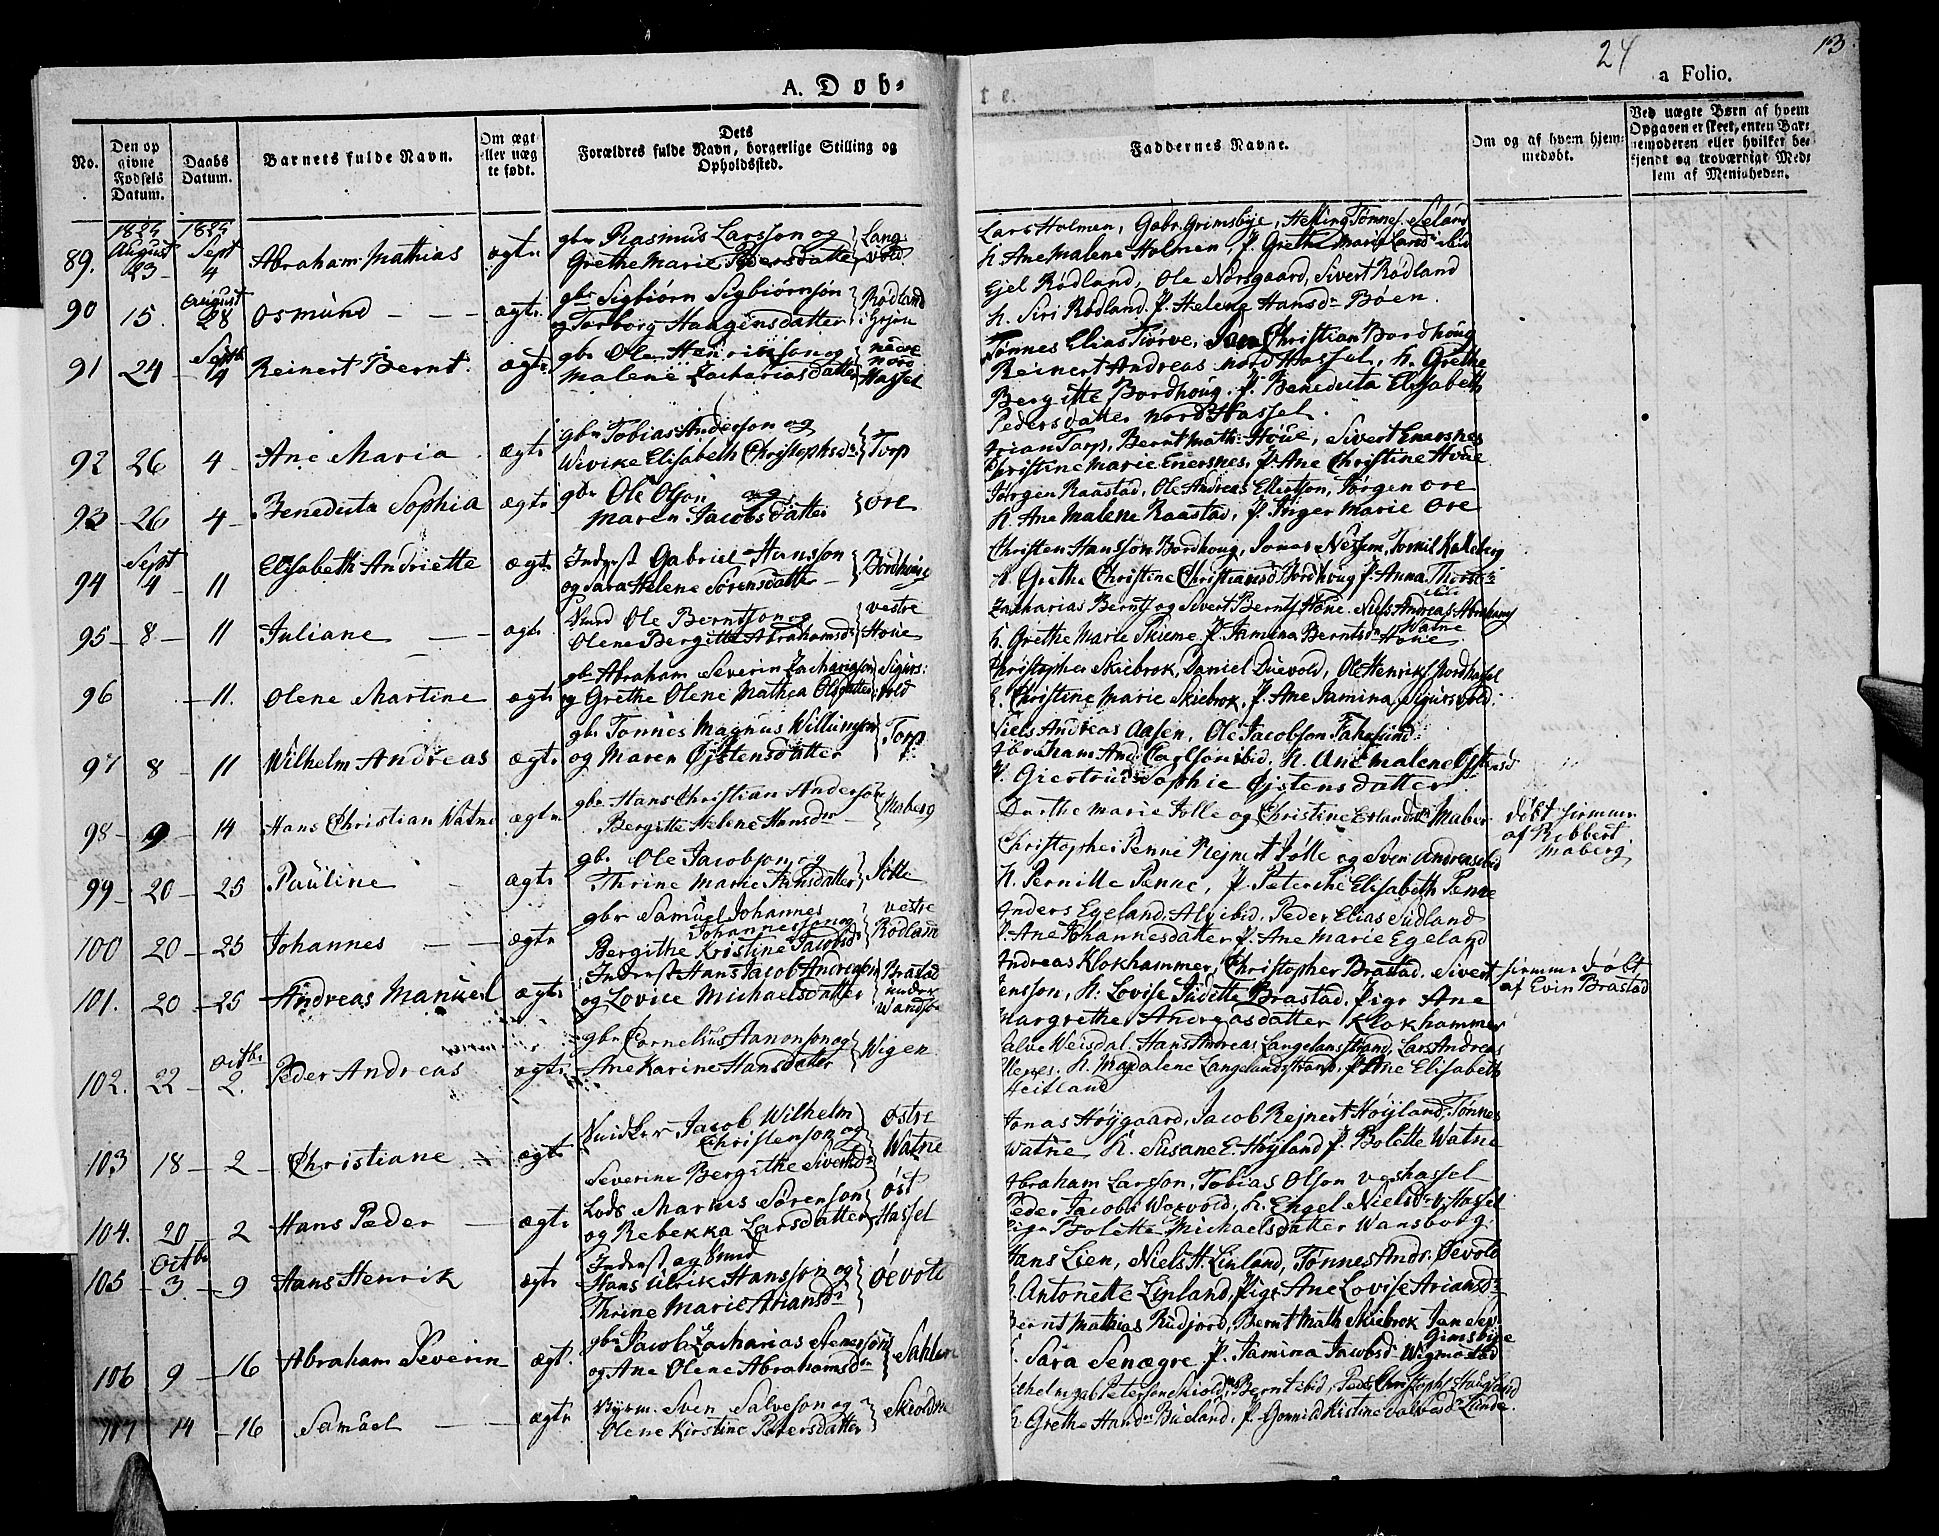 24
13
A. Døb-
te.
a Folio.
No.
Den op
givne
Fødsels
Datum.
Daabs
Datum.
Barnets fulde Navn.
Om ægt
eller uæg
te født.
Dets
Forældres fulde Navn, borgerlige Stilling og
Opholdssted.
Faddernes Navne.
Om og af hvem hjem-
medøbt.
Ved uægte Børn af hvem
Opgaven er skeet, enten Bar-
nemoderen eller hvilket be-
kjendt og troværdigt Med-
lem af Menigheden.
89. August 23 Sept 4 Abraham Mathias ægte gbr Rasmus Larsson og
Grethe Marie Pedersdatter Lang-
vold
Lars Holmen, Gabr. Grimsbye, Helling Tønnes. Seland
K. Ane Malene Holmen, P. Grethe Marie Land ibid
90 15. August 28 Osmund ægte gbr Sigbiørn Sigbiørnsøn
og Torborg Haagensdatter Rødland
Ejel Rødland, Ole Norsgaard, Sivert Rødland
K. Siri Rødland. P. Helene Hansdr Bøen.
91 24 Septb. 4 Reinert Bernt ægte gbr Ole Henriksson og
Malene Zachariasdatter nedre
nord
Hassel
Tønnes Elias Tiørve, Christian Bordhoug
Reinert Andreas Nord Hassel, K. Grethe
Bergitte Bordhoug. P. Benedicta Elisabeth
Pedersdatter Nord Hassel.
92 26 4 Ane Maria ægte gbr Tobias Anderson og
Wivike Elisabeth Christophsdr Torp
Arian Tarp, Bernt Math. Houe, Sivert Enersnes
Christine Marie Enersnes, P. Ane Christine Houe
93 26 4 Benedicta Sophia ægte gbr Ole Olson og
Maren Jacobsdatter Ore
Jørgen Raastad, Ole Andreas Ellertson, Jørgen Ore
K. Ane Malene Raastad, P. Inger Marie Ore
94 Sept 4 11 Elisabeth Andriette ægte Inderst Gabriel Hansson
og Sara Helene Sørensdatter Bordhoug
Christen Hansson Bordhoug, Jonas Nessem, Tormil Kalleberg
K. Grethe Christine Christiansd Bordhoug P. Anna
95 8 11 Juliane ægte Ole Berntson og
Olene Bergitte Abrahamsdr vestre
Houe
Zacharias Bernts og Sivert Bernts Houe. Niels Andreas Abrahams
Watne
K. Grethe Marie Skieme P. Jamina Berntsdr Houe
96 11. Olene Martine ægte gbr Abraham Severin Zachariason
og Grethe Olene Mathea Olsdatter Sigurs-
vold
Christopher Skiebrok, Daniel Duevold, Ole Henriks Nordhassel
K. Christine Marie Skiebrok, P. Ane Jamina Sigursvold.
97 8 11 Wilhelm Andreas ægte gbr Tønnes Magnus Willumsen
og Maren Øystensdatter Torp
Niels Andreas Aasen, Ole Jacobson Farsund
Abraham And. Carlson ibid, K. Ane Malene Østensd
P. Giertrud Sophie Øjstensdatter
98 9 14 Hans Christian Watne ægte gbr Hans Christian Anderson
Bergitte Helene Hansdr Maberg
Dorthe Marie Jølle og Christine Erlandsdr Maber
døbt hiemme
af Robbert
Maberg
99 20 25 Pauline ægte gbr Ole Jacobson og
Thrine Marie Jensdatter Jølle
Christopher Penne Rejnert Jølle og Sven Andreas ibid
K. Pernille Penne, P. Peterche Elisabeth Penne
100 20 25 Johannes ægte gbr Samuel Johannes
Johannesson og
Bergithe Kristine Jacobsd vestre
Rødland
Anders Egeland, Alv ibid, Peder Elias Sudland
P. Ane Johannesdatter P. Ane Marie Egeland
101. 20 25 Andreas Manuel ægte Inderst Hans Jacob Andreasen
og Lovice Michaelsdatter Brastad
under
Andreas Klokhammer, Christopher Brastad. Sivert
Jensson, K. Lovise Juditte Brastad, Pige Ane
Margrethe Andreasdatter Klokhammer
hiemme døbt
af Evin Brastad
102. 22 Octbr 2. Peder Andreas ægte gbr Cornelius Aanonson og
Ane Karine Hansdatter Wigen
Salve Weisdal. Hans Andreas Langelandstrand, Lars Andreas
K. Magdalene Langelandstrand, P. Ane Elisabeth
Heitland
103 18 2 Christiane ægte Jacob Wilhelm
Christenson og
Severine Bergithe Sivertsdr Østre
Watne
Jonas Høygaard, Jacob Rejnert Høyland, Tønnes
Watne K. Susane E. Høyland P. Bolette Watne
104. 20 2 Hans Peder ægte Lods Markus Sørenson
og Rebekka Larsdatter Øst
Hassel
Abraham Larsson, Tobias Olson Hassel
Peder Jacobs Woxvold, K. Engel Nielsdr V. Hassel
Pige Bolette Michaelsdatter Wansborg
105 Octbr 3 9 Hans Henrik ægte Inderst og Smed
Hans Ulrik Hansson og
Thrine Marie Ariansdr Øevold
Hans Lien, Niels H. Linland, Tønnes Andr. Øevold
K. Antonette Linland, Pige Ane Lovise Ariansdr
106 9 16 Abraham Severin ægt. gbr Jacob Zacharias Stenersøn
og Ane Olene Abrahamsdr Sahlen
Bernt Mathias Rudjord, Bernt Math Skiebrok Jan
Gimsbye
K. Sara Senægre P. Jamina Jacobsd Wigmostad
107 14 16 Samuel ægte Sven Salveson og
Olene Kirstine Petersdatter
Wilhelm Peterson Bernt ibid, Peder Christophs Haugland
K. Grethe Hansdr Bueland, P. Gonnild Kistine Salvesdr Lunde.